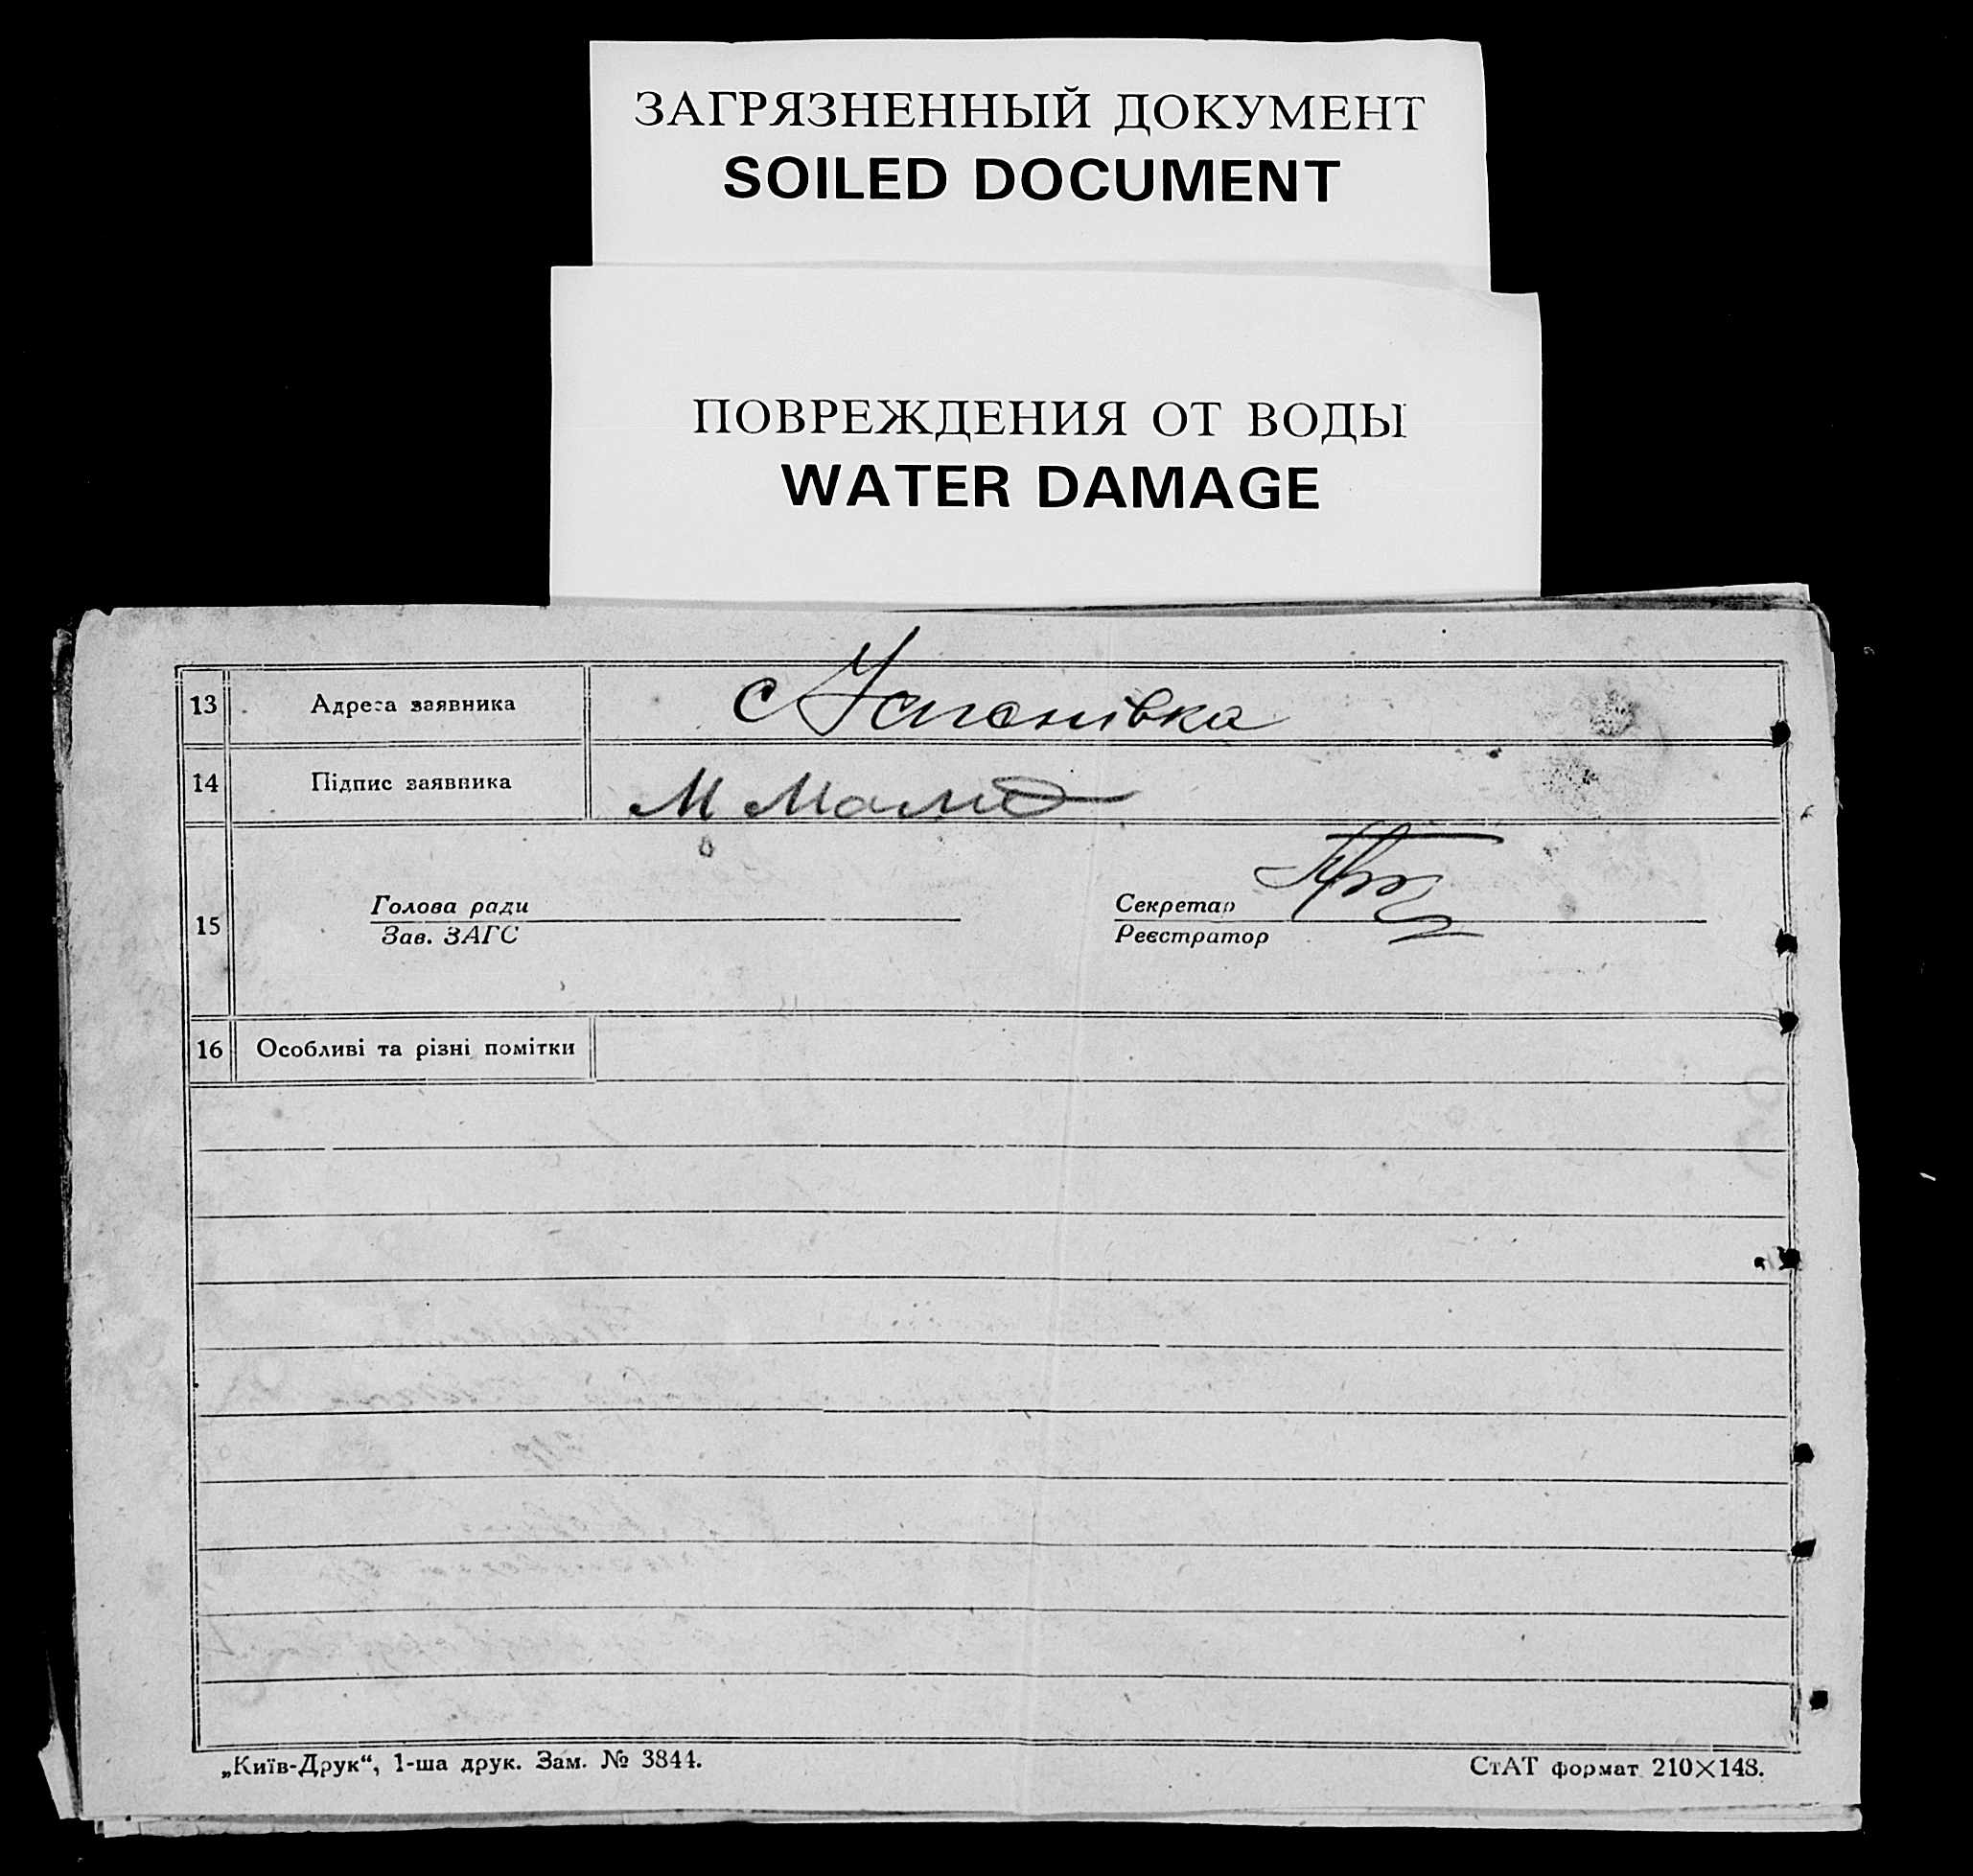 ЗАГРЯЗНЕННЫЙ ДОКУМЕНТ
SOILED DOCUMENT
ПОВРЕЖДЕНИЯ ОТ ВОДЫ
WATER DAMAGE
13 Адреса заявника с Успенівка
14 Підпис заявника М
15 Голова ради Секретар
Зав. ЗАГС Реєстратор
16 Особливі та різні помітки
„Київ-Друк“, 1-ша друк. Зам. № 3844. СтАТ формат 210×148.